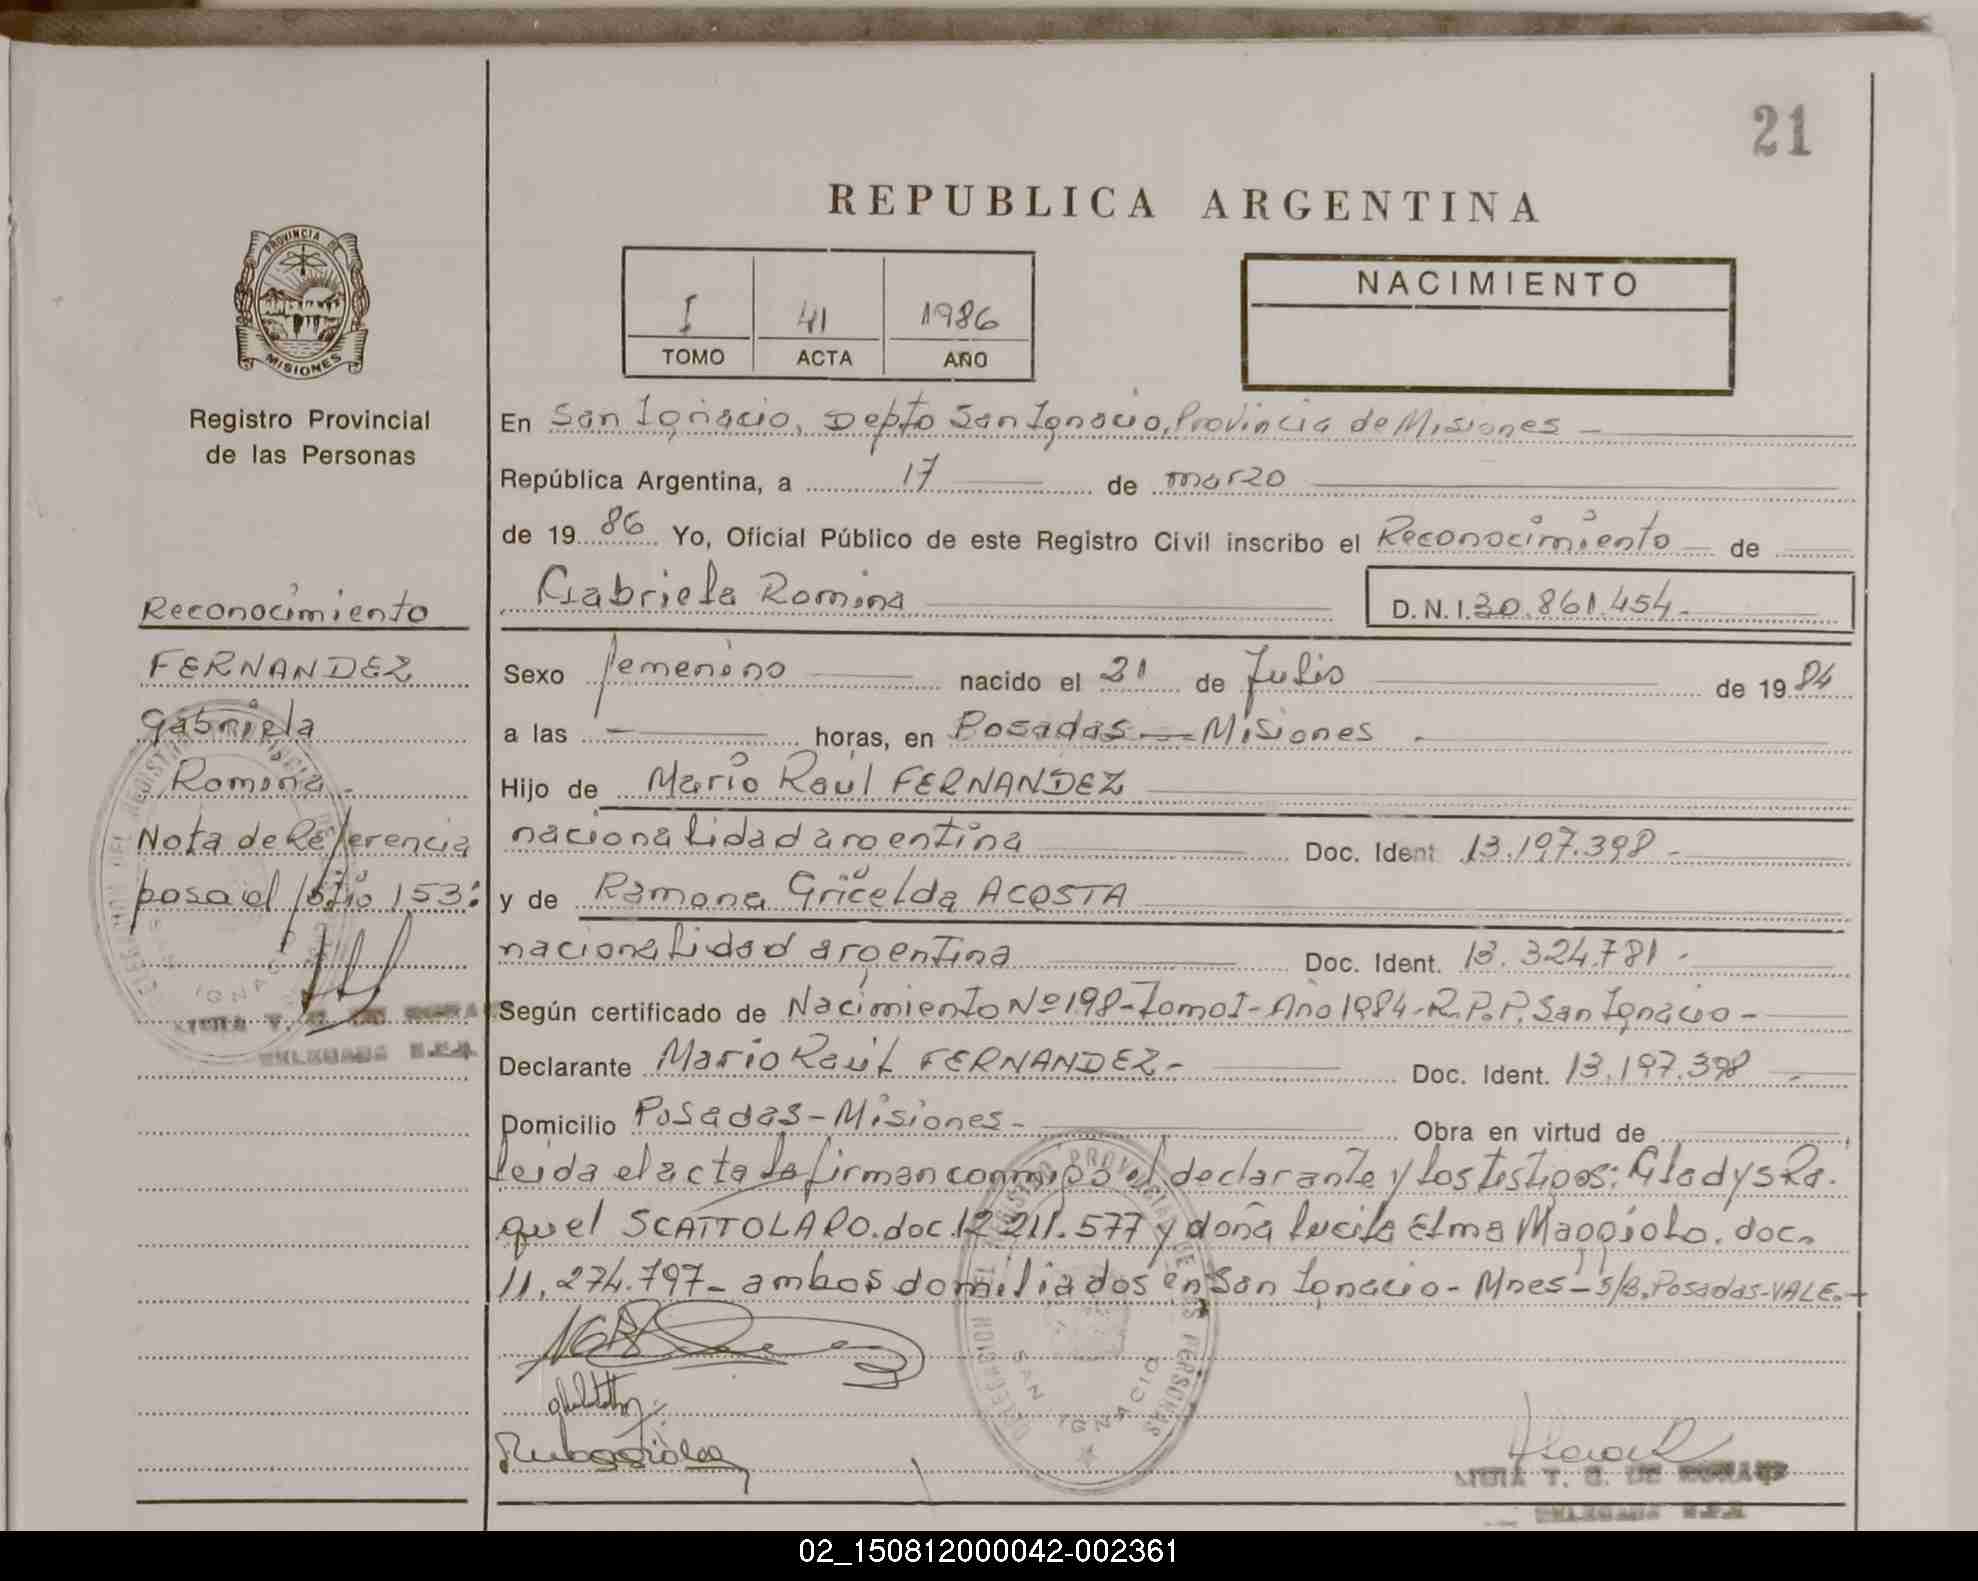 21
REPUBLICA ARGENTINA
PROVINCIA DE
MISIONES
Registro Provincial
de las Personas
I 41 1986
TOMO ACTA AÑO
NACIMIENTO
En San Ignacio, Depto San Ignacio, Provincia de Misiones
República Argentina, a 17 de marzo
de 19 86 Yo, Oficial Público de este Registro Civil inscribo el Reconocimiento de
Gabriela Romina D.N.I. 30.861.454.
Sexo femenino nacido el 21 de Julio de 19 84
a las — horas, en Posadas — Misiones.
Hijo de Mario Raúl FERNANDEZ
nacionalidad argentina Doc. Ident 13.197.398.
y de Ramona Gricelda ACOSTA
nacionalidad argentina Doc. Ident. 13.324.781.
Según certificado de Nacimiento Nº 198-Tomo I-Año 1984-R.P.P. San Ignacio-
Declarante Mario Raúl FERNANDEZ- Doc. Ident. 13.197.398
Domicilio Posadas-Misiones- Obra en virtud de
leida el acta la firman conmigo el declarante y los testigos: Gladys Ra-
quel SCATTOLARO. doc. 12.211.577 y doña Lucila Elma Maggiolo. doc.
11.274.797- ambos domiliados en San Ignacio- Mnes- S/B. Posadas-VALE.-
Reconocimiento
FERNANDEZ
Gabriela
Romina.
Nota de Referencia
pasa al folio 153:
DELEGACION DEL REGISTRO PROVINCIAL DE LAS PERSONAS
SAN IGNACIO
DELEGADA R.P.P.
DELEGACION DEL REGISTRO PROVINCIAL DE LAS PERSONAS
SAN IGNACIO
DELEGADA R.P.P.
02_150812000042-002361